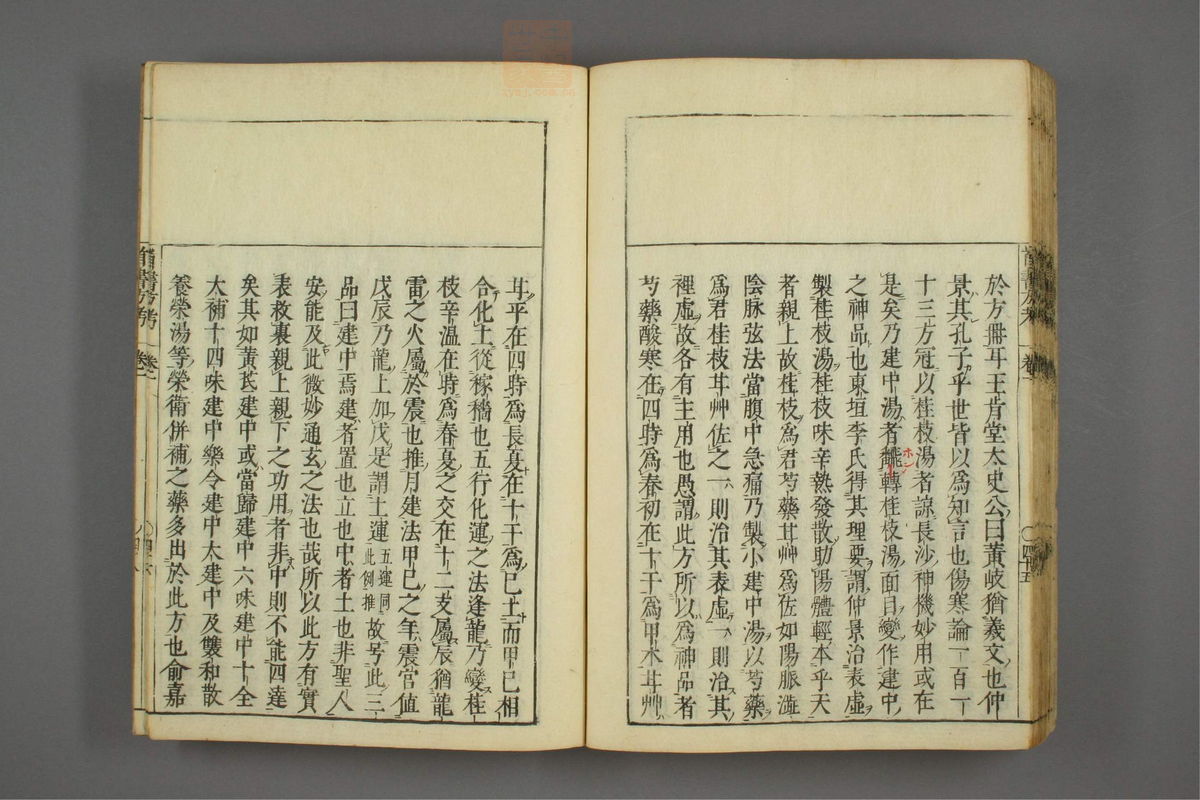 於方冊耳王肯堂太史公曰黃岐猶羲文也仲
景其孔子乎世皆以爲知言也傷寒論一百一
十三方冠以桂枝湯者諒長沙神機妙用或在
是矣乃建中湯者飜轉桂枝湯面目變作建中
之神品也東垣李氏得其理要謂仲景治表虛
製桂枝湯桂枝味辛熱發散助陽體輕本乎天
者親上故桂枝爲君芍藥甘艸爲佐如陽脈澁
陰脉弦法當腹中急痛乃製小建中湯以芍藥
爲君桂枝甘艸佐之一則治其表虛一則治其
裡虛故各有主用也愚謂此方所以爲神品者
芍藥酸寒在四時爲春初在十干爲甲木甘艸
甘平在四時爲長夏在十干爲己土而甲己相
合化土從稼穡也五行化運之法逢龍乃變桂
枝辛溫在時爲春夏之交在十二支屬辰猶龍
雷之火屬於震也推月建法甲己之年震宮値
戊辰乃龍上加戊是謂土運五運同此例推故号此三
品曰建中焉建者置也立也中者土也非聖人
安能及此微妙通玄之法也哉所以此方有實
表救裏親上親下之功用者非中則不能四達
矣其如黃芪建中或當歸建中六味建中十全
大補十四味建中樂令建中大建中及雙和散
養榮湯等榮衛併補之藥多出於此方也俞嘉